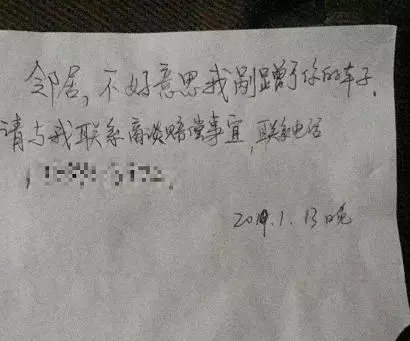 邻居，不好意思我剐蹭了你的车子，
请与我联系商谈赔偿事宜，联系电话
2019.1.13晚